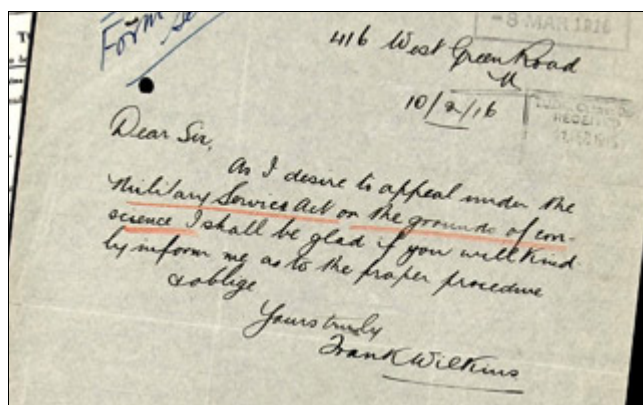 Form
-8 MAR 1916
416 West Green Road
N
10/2/16
RECEIVED
Dear Sir,
As I desire to appeal under the
Military Service Act on the grounds of con-
science I shall be glad if you will kind-
ly inform me as to the proper procedure
& oblige
Yours truly
Frank Wilkins